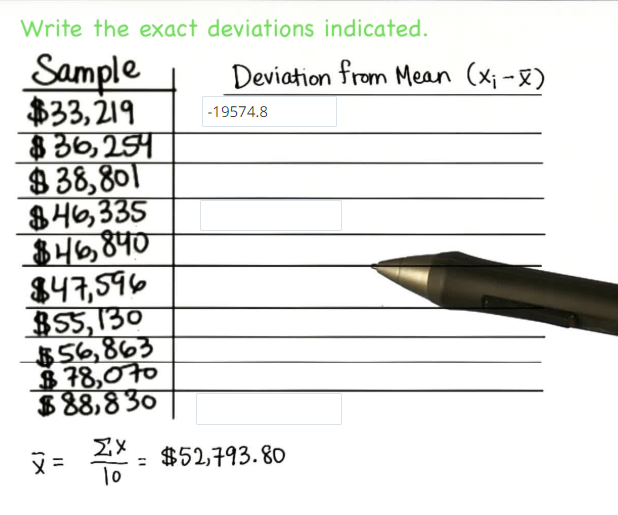 Write the exact deviations indicated.
Sample Deviation from Mean (xᵢ - x̄)
$33,219 -19574.8
$36,254
$38,801
$46,335
$46,840
$47,596
$55,130
$56,863
$78,070
$88,830
x̄ = Σx / 10 = $52,793.80